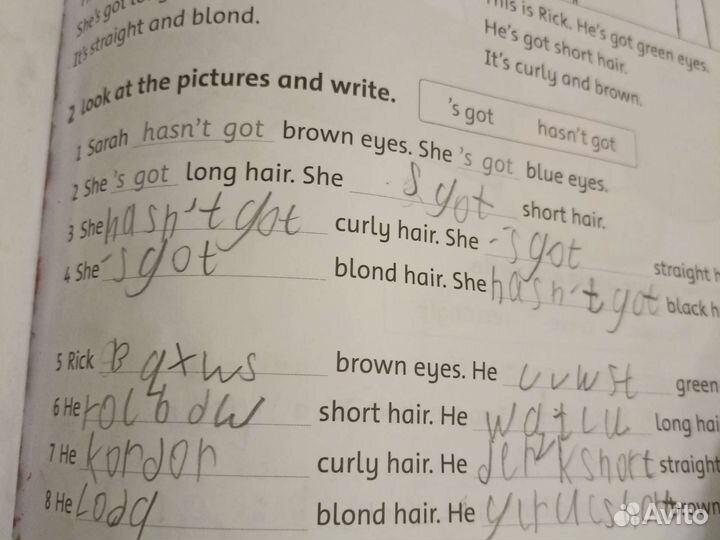 She's got
It's straight and blond.
This is Rick. He's got green eyes.
He's got short hair.
It's curly and brown.
2 Look at the pictures and write.
's got hasn't got
1 Sarah hasn't got brown eyes. She 's got blue eyes.
2 She 's got long hair. She s got short hair.
3 She hasn't got curly hair. She 's got straight h
4 She 's got blond hair. She hasn't got black h
5 Rick brown eyes. He green
6 He short hair. He long hai
7 He kordor curly hair. He short straight
8 He blond hair. He brown
Avito